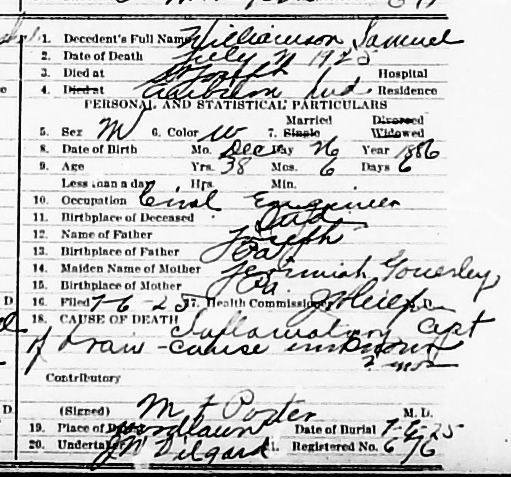 1. Decedent's Full Name Williamson Samuel
2. Date of Death July 2 1925
3. Died at St Joseph Hospital
4. Died at Ind Residence
PERSONAL AND STATISTICAL PARTICULARS
Married Divorced
5. Sex M 6. Color W 7. Single Widowed
8. Date of Birth Mo. Dec Day 26 Year 1886
9. Age Yrs. 38 Mos. 6 Days 6
Less than a day Hrs. Min.
10. Occupation Civil Engineer
11. Birthplace of Deceased Ind
12. Name of Father Joseph
13. Birthplace of Father Pa
14. Maiden Name of Mother Jemimiah Gourley
15. Birthplace of Mother Pa.
16. Filed 7-6-25 17. Health Commissioner M. D.
18. CAUSE OF DEATH
of brain - cause unknown
2 mos
Contributory
(Signed) M F Porter M. D.
19. Place of Burial Woodlawn Date of Burial 7-6-25
20. Undertaker J M Dilgard 21. Registered No. 676
D.
D.